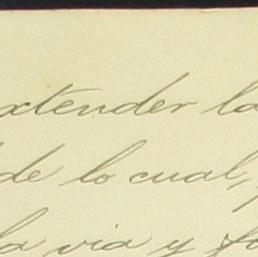 extender la
de lo cual,
la via y